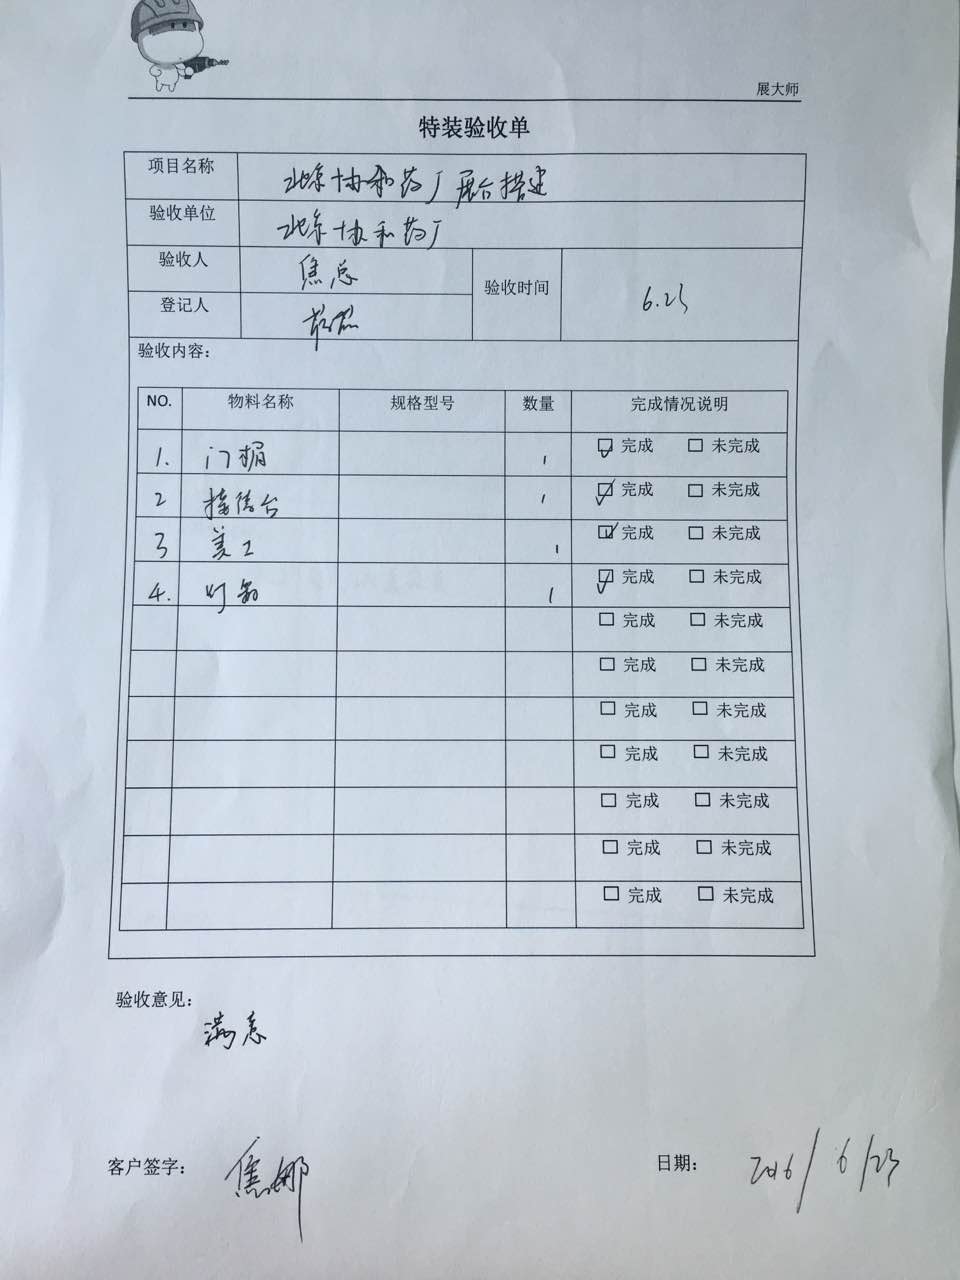 展大师
特装验收单
项目名称 北京协和药厂展台搭建
验收单位 北京协和药厂
验收人 焦总 验收时间 6.23
登记人
验收内容：
NO. 物料名称 规格型号 数量 完成情况说明
1. 门楣 1 ☑ 完成 □ 未完成
2 接待台 1 ☑ 完成 □ 未完成
3 美工 1 ☑ 完成 □ 未完成
4. 灯箱 1 ☑ 完成 □ 未完成
□ 完成 □ 未完成
□ 完成 □ 未完成
□ 完成 □ 未完成
□ 完成 □ 未完成
□ 完成 □ 未完成
□ 完成 □ 未完成
□ 完成 □ 未完成
验收意见：
满意
客户签字： 焦娜 日期： 2016/6/23